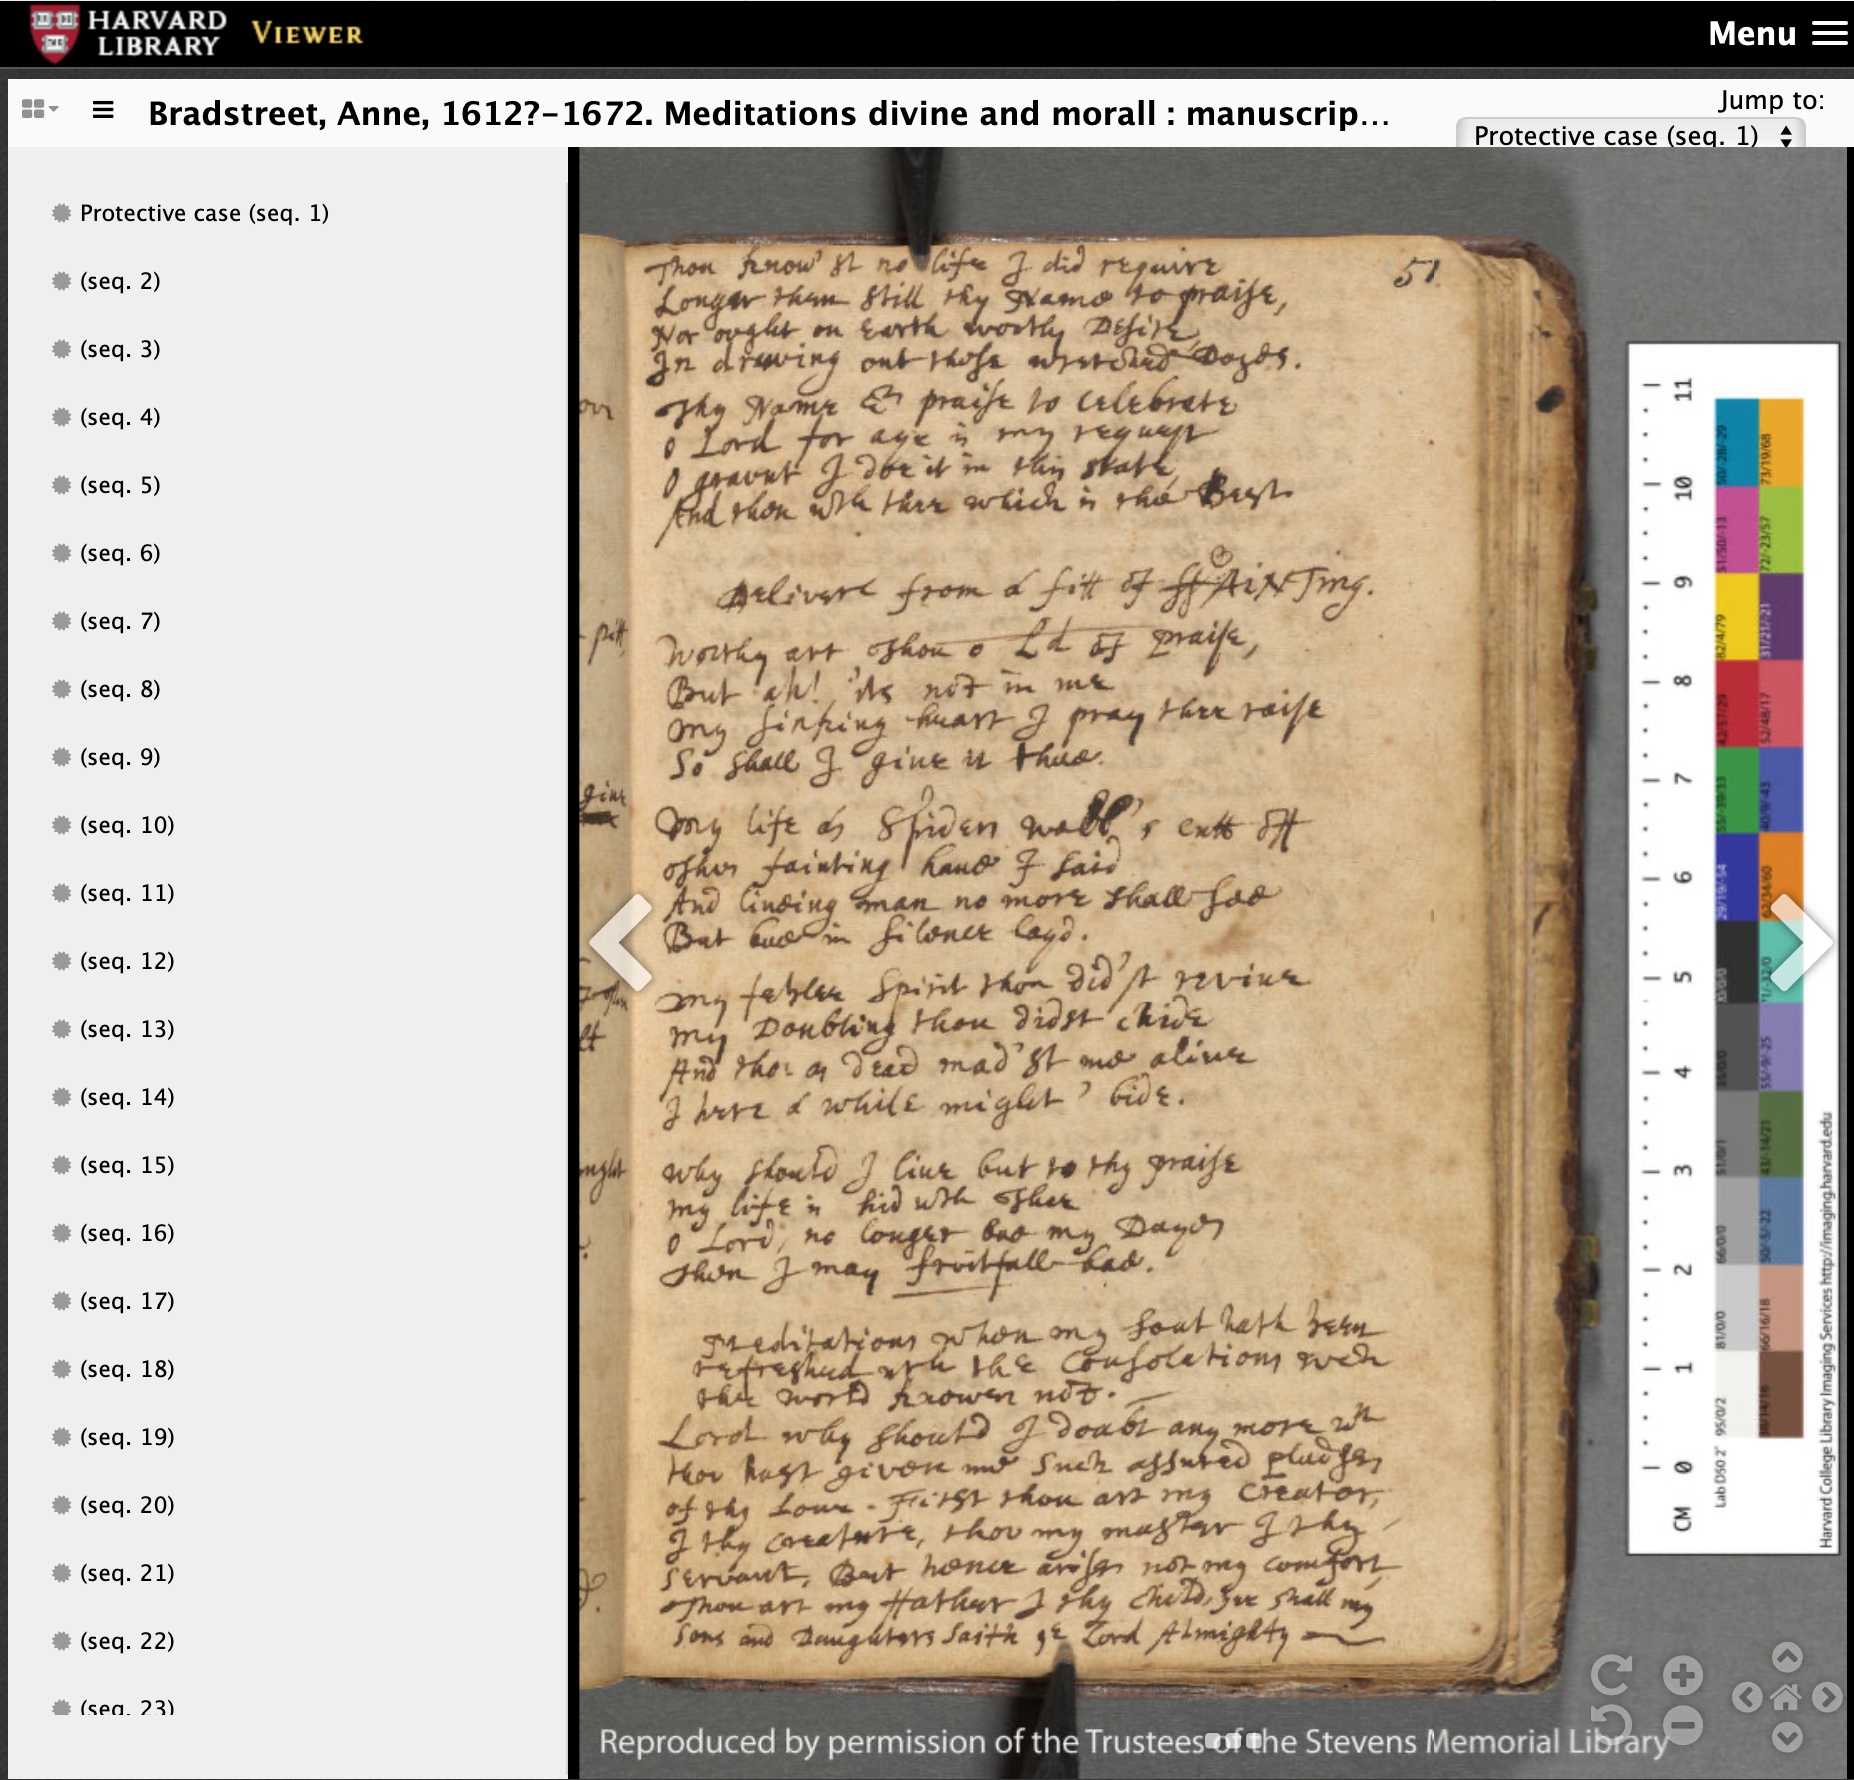 HARVARD
LIBRARY
VIEWER
Menu
Bradstreet, Anne, 1612?-1672. Meditations divine and morall : manuscrip...
Jump to:
Protective case (seq. 1)
Protective case (seq. 1)
(seq. 2)
(seq. 3)
(seq. 4)
(seq. 5)
(seq. 6)
(seq. 7)
(seq. 8)
(seq. 9)
(seq. 10)
(seq. 11)
(seq. 12)
(seq. 13)
(seq. 14)
(seq. 15)
(seq. 16)
(seq. 17)
(seq. 18)
(seq. 19)
(seq. 20)
(seq. 21)
(seq. 22)
(seq. 23)
51
Thou know'st no life I did require
Longer then still thy Name to praise,
Nor ought on Earth worthy Desire,
In drawing out those wretched Dayes.
Thy Name & praise to celebrate
O Lord for aye is my request
O graunt I doe it in this state
And then wth thee which is the Best
Deliverc from a fitt of ffAiNTing.
Worthy art Thou o Ld of praise,
But ah! 'its not in me
My sinking heart I pray thee raise
So shall I give it thee.
My life as Spiders webb's cutt off
Thus fainting have I said
And liveing man no more shall see
But bee in silence layd.
My feblee Spirit thou did'st revive
My Doubting thou didst chide
And tho: as dead mad'st me alive
I here a while might 'bide.
Why should I live but to thy praise
My life is hid wth Thee
O Lord, no longer bee my Dayes
Then I may fruitfull bee.
Meditations when my Soul hath been
refreshed wth the Consolations wch
the world knowes not.
Lord why should I doubt any more wn
thou hast given me such assured pledges
of thy Love. First thou art my Creator,
I thy creature, thou my master I thy
servant, But hence arises not my comfort,
Thou art my ffather I thy child, yee shall my
Sons and Daughters Saith ye Lord Almighty
give
ought
CM 0 1 2 3 4 5 6 7 8 9 10 11
Harvard College Library Imaging Services http://imaging.harvard.edu
Reproduced by permission of the Trustees of the Stevens Memorial Library